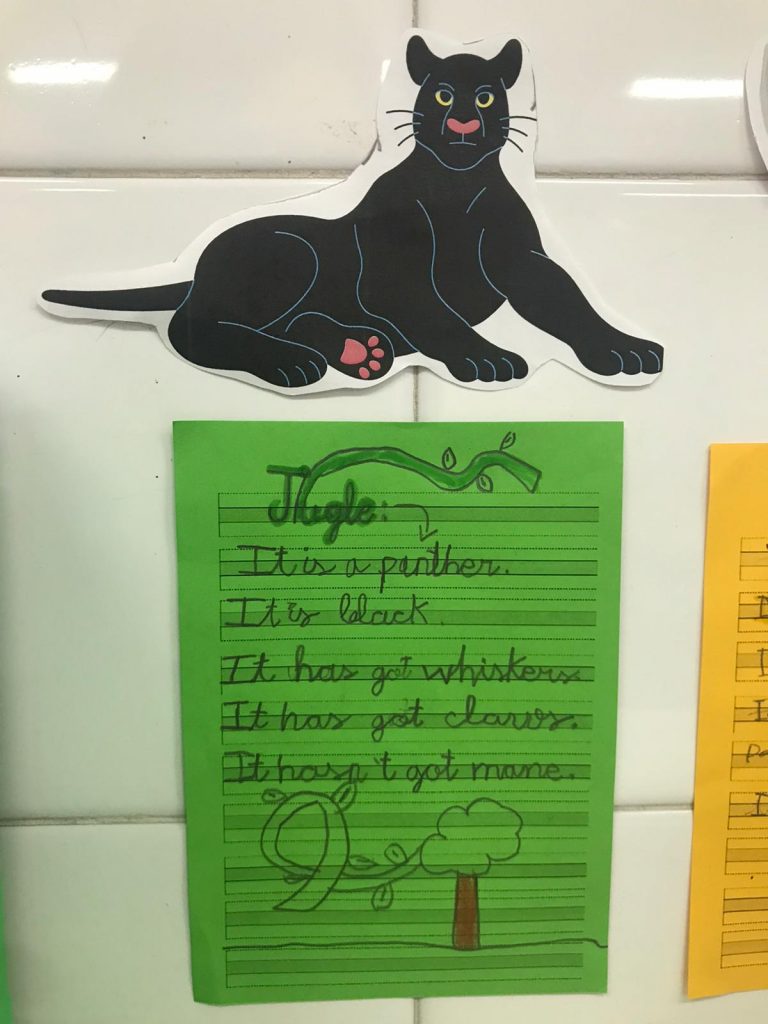 Jugle:
It is a panther.
It is black.
It has got whiskers.
It has got claws.
It hasn't got mane.